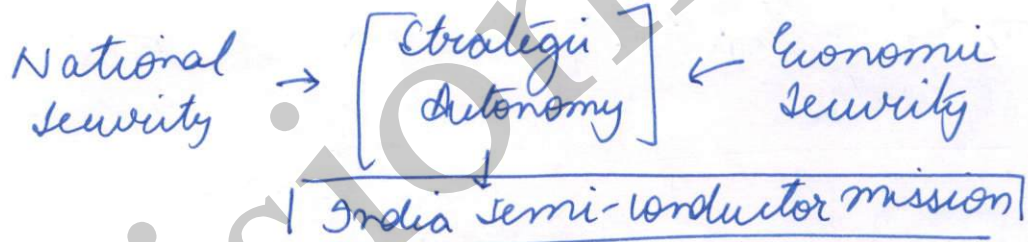 National
Security
→
Strategic
Autonomy
←
Economic
Security
↓
India Semi-conductor mission